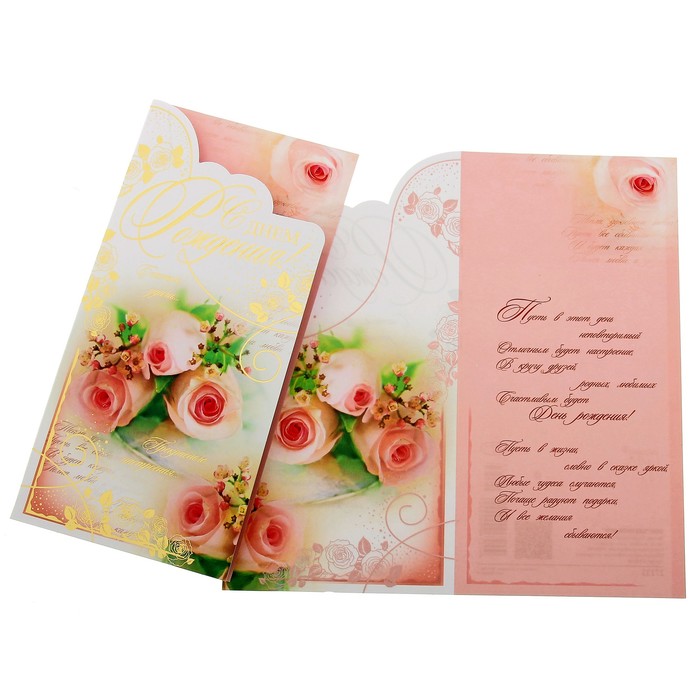 С днём
Рождения!
Пусть в этот день
неповторимый
Отличным будет настроение,
В кругу друзей,
родных, любимых
Счастливым будет
День рождения!
Пусть в жизни,
словно в сказке яркой,
Любые чудеса случаются,
Почаще радуют подарки,
И все желания
сбываются!